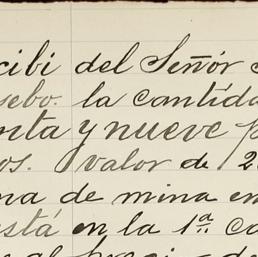 cibi del Señor
sebo. la cantida
nta y nueve p
os. valor de 2
na de mina en
está en la 1ª. ca